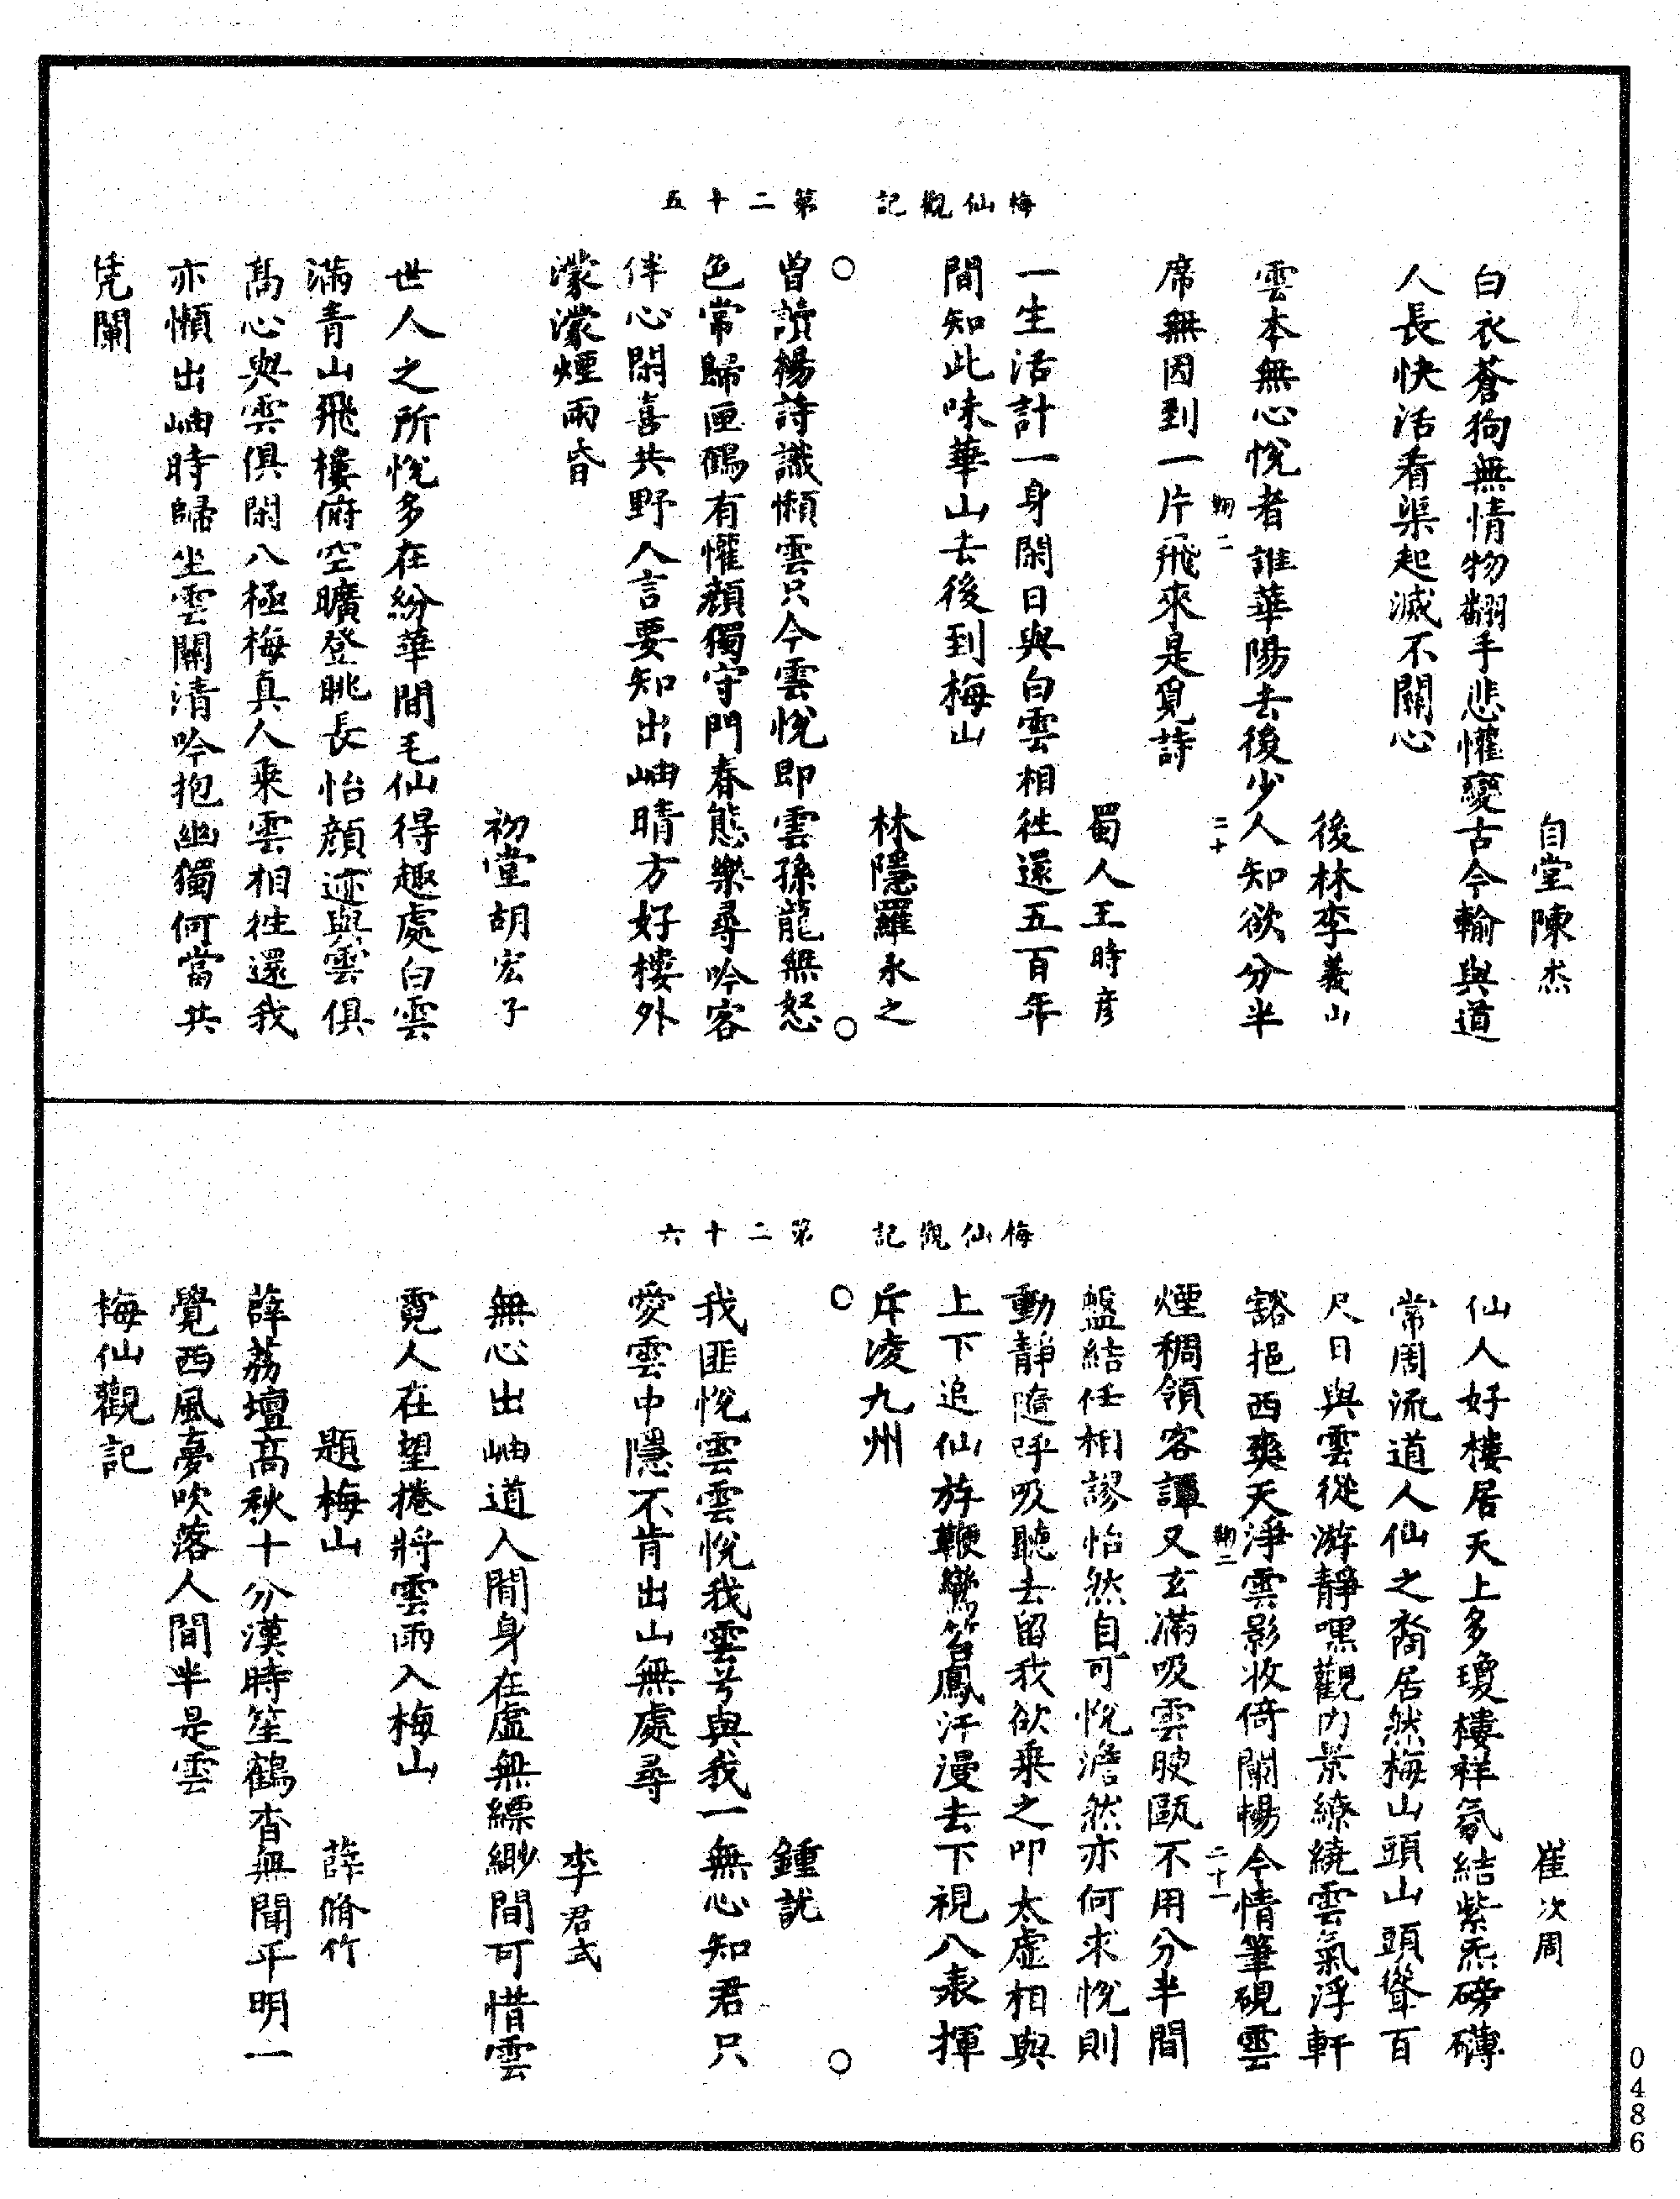 梅仙觀記　第二十五
自堂陳杰
白衣蒼狗無情物翻手悲懽變古今輸與道
人長快活看渠起滅不關心
後林李義山
雲本無心悅者誰華陽去後少人知欲分半
席無因到一片飛來是覓詩
蜀人王時彥
一生活計一身閑日與白雲相徃還五百年
間知此味華山去後到梅山
林隱羅永之
曾讀楊詩識懶雲只今雲悅即雲孫龍無怒
色常歸匣鶴有懽顏獨守門春態樂尋吟客
伴心閑喜共野人言要知出岫晴方好樓外
濛濛煙雨昏
初堂胡宏子
世人之所悅多在紛華間毛仙得趣處白雲
滿青山飛樓俯空曠登眺長怡顏迹與雲俱
髙心與雲俱閑八極梅真人乘雲相徃還我
亦懶出岫時歸坐雲關清吟抱幽獨何當共
凭闌
梅仙觀記　第二十六
崔次周
仙人好樓居天上多瓊樓祥氛結紫炁磅礴
常周流道人仙之裔居然梅山頭山頭聳百
尺日與雲從游靜嘿觀內景繚繞雲氣浮軒
豁挹西爽天淨雲影收倚闌暢今情筆硯雲
煙稠領客譚又玄滿吸雲腴甌不用分半間
盤結任相謬怡然自可悅澹然亦何求悅則
動靜隨呼吸聽去留我欲乘之叩太虛相與
上下追仙斿鞭鸞笞鳳汗漫去下視八表揮
斥凌九州
鍾說
我匪悅雲雲悅我雲兮與我一無心知君只
愛雲中隱不肯出山無處尋
李君式
無心出岫道入閒身在虛無縹緲間可惜雲
霓人在望捲將雲雨入梅山
題梅山
薛脩竹
薜荔壇高秋十分漢時笙鶴杳無聞平明一
覺西風夢吹落人間半是雲
梅仙觀記
鞠二
二十
鞠二
二十一
0486